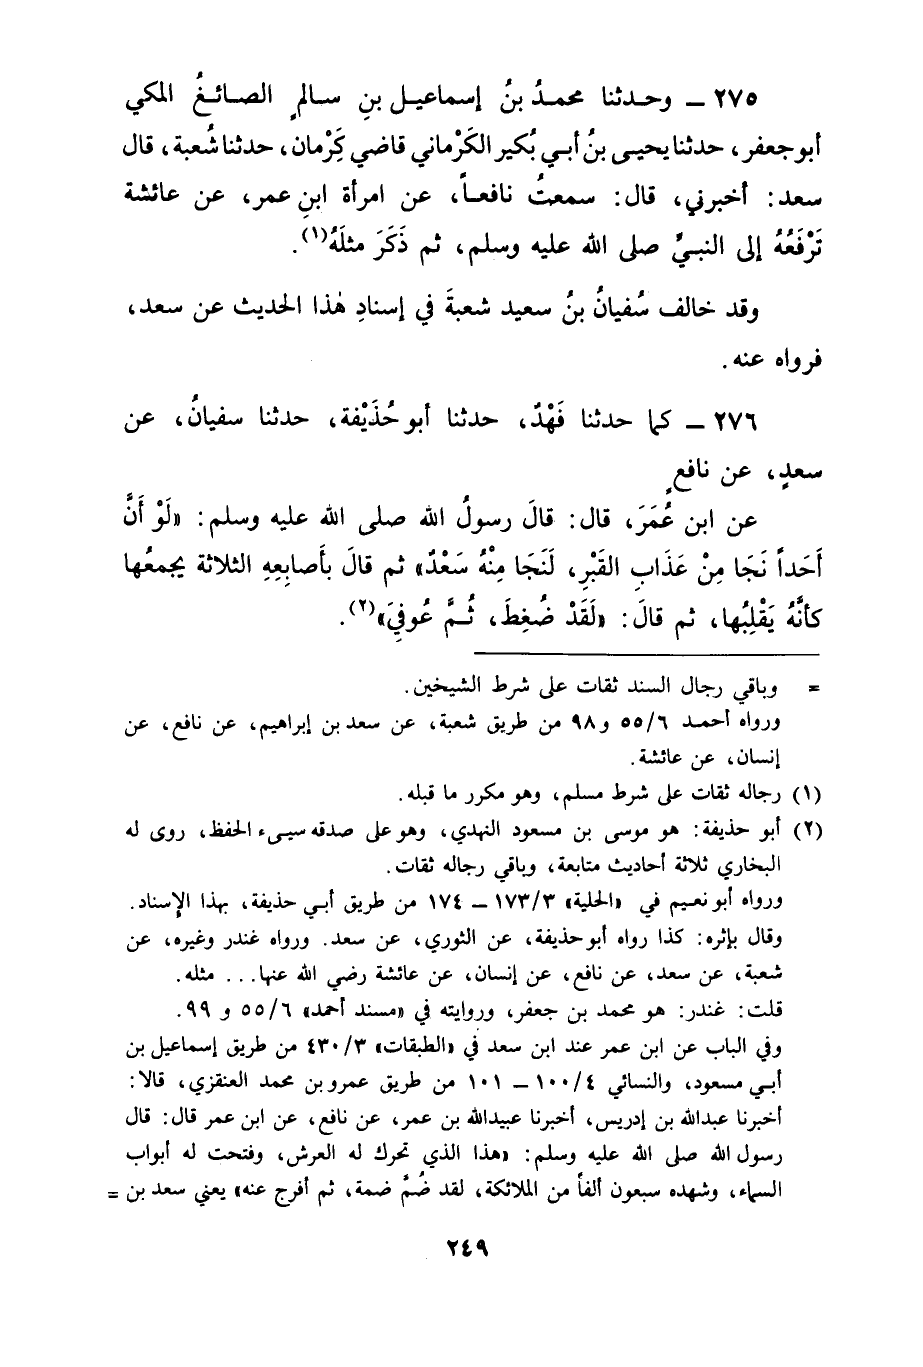 ٢٧٥ ــ وحدثنا محمدُ بنُ إسماعيل بنِ سالمٍ الصائغُ المكي
أبو جعفر، حدثنا يحيى بنُ أبي بُكير الكَرْماني قاضي كِرْمان، حدثنا شُعبة، قال
سعد: أخبرني، قال: سمعتُ نافعاً، عن امرأة ابنِ عمر، عن عائشة
تَرْفَعُهُ إلى النبيِّ صلى الله عليه وسلم، ثم ذَكَرَ مثلَهُ(١).
وقد خالف سُفيانُ بنُ سعيد شعبةَ في إسنادِ هٰذا الحديث عن سعد،
فرواه عنه.
٢٧٦ ــ كما حدثنا فَهْدٌ، حدثنا أبو حُذَيْفة، حدثنا سفيانُ، عن
سعدٍ، عن نافعٍ
عن ابن عُمَرَ، قال: قالَ رسولُ الله صلى الله عليه وسلم: «لَوْ أنَّ
أَحَداً نَجَا مِنْ عَذَابِ القَبْرِ، لَنَجَا مِنْهُ سَعْدٌ» ثم قالَ بأصابِعِهِ الثلاثة يجمعُها
كأنَّهُ يَقْلِبُها، ثم قالَ: «لَقَدْ ضُغِطَ، ثُمَّ عُوفِيَ»(٢).
= وباقي رجال السند ثقات على شرط الشيخين.
ورواه أحمد ٥٥/٦ و٩٨ من طريق شعبة، عن سعد بن إبراهيم، عن نافع، عن
إنسان، عن عائشة.
(١) رجاله ثقات على شرط مسلم، وهو مكرر ما قبله.
(٢) أبو حذيفة: هو موسى بن مسعود النهدي، وهو على صدقه سيىء الحفظ، روى له
البخاري ثلاثة أحاديث متابعة، وباقي رجاله ثقات.
ورواه أبو نعيم في «الحلية» ١٧٣/٣ ــ ١٧٤ من طريق أبي حذيفة، بهذا الإسناد.
وقال بإثره: كذا رواه أبو حذيفة، عن الثوري، عن سعد. ورواه غندر وغيره، عن
شعبة، عن سعد، عن نافع، عن إنسان، عن عائشة رضي الله عنها... مثله.
قلت: غندر: هو محمد بن جعفر، وروايته في «مسند أحمد» ٥٥/٦ و ٩٩.
وفي الباب عن ابن عمر عند ابن سعد في «الطبقات» ٤٣٠/٣ من طريق إسماعيل بن
أبي مسعود، والنسائي ١٠٠/٤ ــ ١٠١ من طريق عمرو بن محمد العنقزي، قالا:
أخبرنا عبدالله بن إدريس، أخبرنا عبيدالله بن عمر، عن نافع، عن ابن عمر قال: قال
رسول الله صلى الله عليه وسلم: «هذا الذي تحرك له العرش، وفتحت له أبواب
السماء، وشهده سبعون ألفاً من الملائكة، لقد ضُمَّ ضمة، ثم أفرج عنه» يعني سعد بن =
٢٤٩